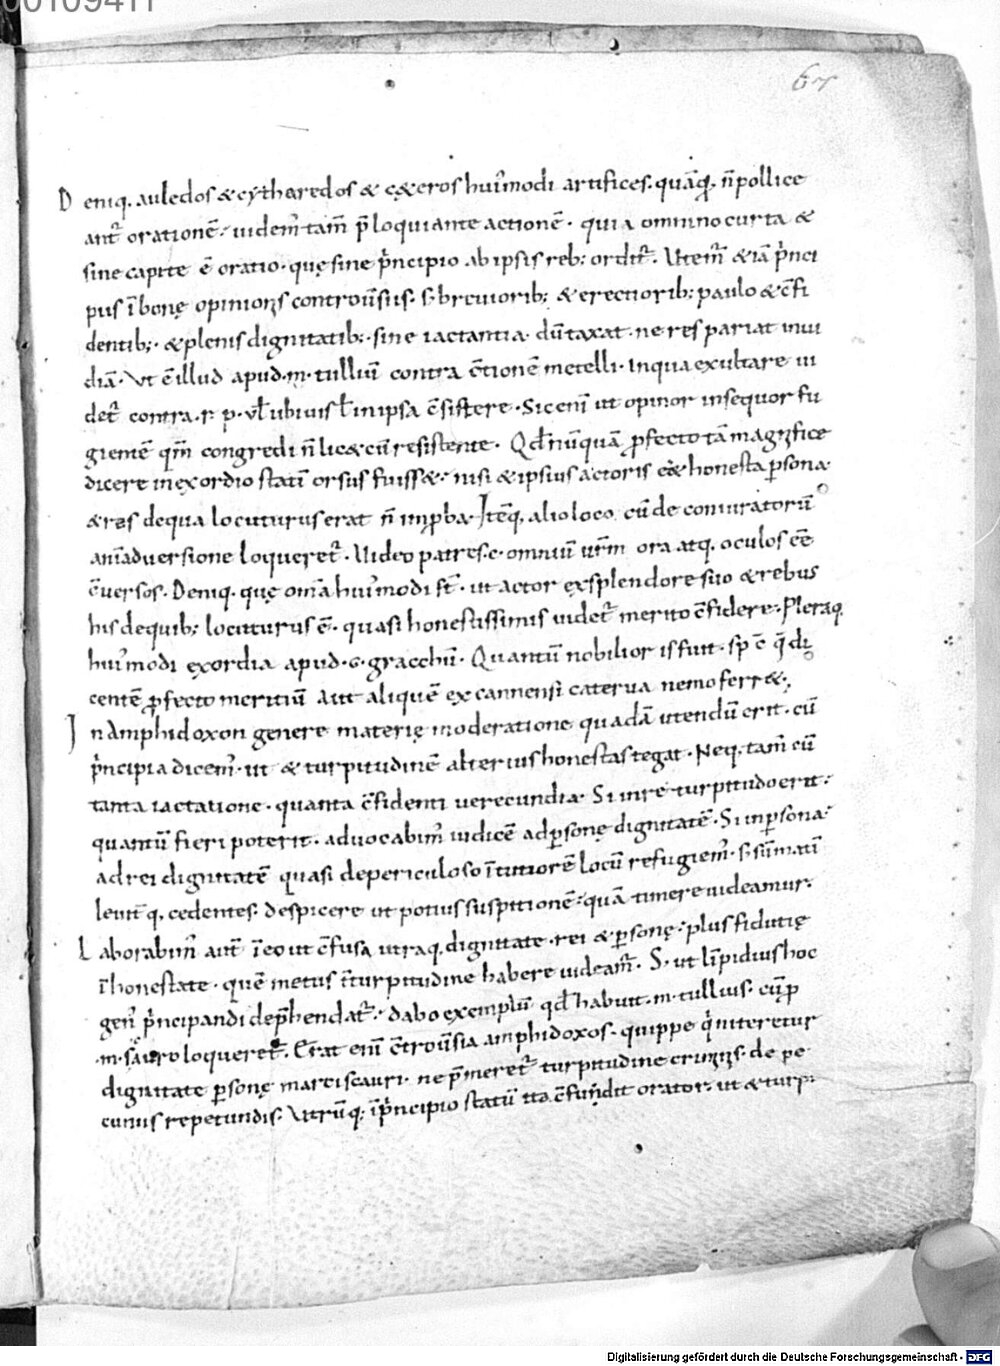 00109411
67
Deniq. auledos & cytharedos & c&eros hui᾽modi artifices. quāq̄. n̄ pollice
ant᷑ orationē. uidem᷑ tam̄ p̄loquiante actionē. quia omnino curta &
sine capite ē oratio. quę sine p̍ncipio ab ipsis reb; ordit᷑. Utem᷑ & iā p̍nci
piis ī bonę opinionis controuersiis. s; breuiorib; & erectiorib; paulo & c̄fi
dentib; & plenis dignitatib; sine iactantia. dūtaxat. ne res pariat inui
diā. Ut ē illud apud .m. tulliū contra c̄tionē metelli. Inqua exultare ui
det᷑ contra .r. p. ut̄ ubiuis ł in ipsa c̄sistere. Sic eni ut opinor insequor fu
gientē qm̄ congredi n̄ lic& cū resistente. Qd̄ nūquā ꝓfecto tā magnifice
dicere in exordio statī orsus fuiss&. nisi & ipsius actoris e&̄ honesta ꝑsona.
& res dequa locuturus erat n̄ imꝓba. Iteq, alio loco cū de coniuratorū
aīaduersione loqueret᷑. Uideo patres .c. omniū ur̄m ora atq. oculos ēe
c̄uersos. Deniq. quę oma hui᾽modi st̄. ut actor ex splendore suo & rebus
his dequib; locuturus ē. quasi honestissimis uidet᷑ merito c̄fidere. Pleraq
hui᾽modi exordia apud .c. gracchū. Quantū nobilior is fuit. sp̄ c̄ q̍ di
centē ꝓfecto meritiū Aut aliquē ex cannensi caterua nemo ferr&.
In amphidoxon genere materię moderatione quadā utendū erit. cū
p̍ncipia dicem᷑. ut & turpitudinē alterius honestas tegat. Neq. tam̄ cū
tanta iactatione. quanta c̄fidenti uerecundia. Si inre turpitudo erit.
quantū fieri poterit. aduocabim᷑ iudicē ad ꝑsonę dignitatē. Si in ꝑsona.
ad rei dignitatē quasi de periculoso ī tutiorē locū refugiem᷑. s; sūmatī
leuit᷑q, cedentes. despicere ut potius suspitionē. quā timere uideamur.
Laborabim᷑ aut̄ ī eo ut c̄fusa utraq. dignitate. rei & ꝑsonę. plus fidutię
ī honestate. quē metus ī turpitudine habere uideam᷑. S. ut līpidius hoc
gen᷑ p̍ncipandi dep̄hendat᷑. dabo exemplū qd̄ habuit .m. tullius. cū ꝓ
.m. scauro loqueret᷑. Erat eni c̄trouersia amphidoxos. quippe q̄ niteretur
dignitate ꝑsonę marci scauri. ne p̄meret᷑ turpitudine criminis. de pe
cuniis repetundis. Utrūq; ī p̍ncipio statū ita c̄fundit orator. ut & turpi
Digitalisierung gefördert durch die Deutsche Forschungsgemeinschaft - DFG